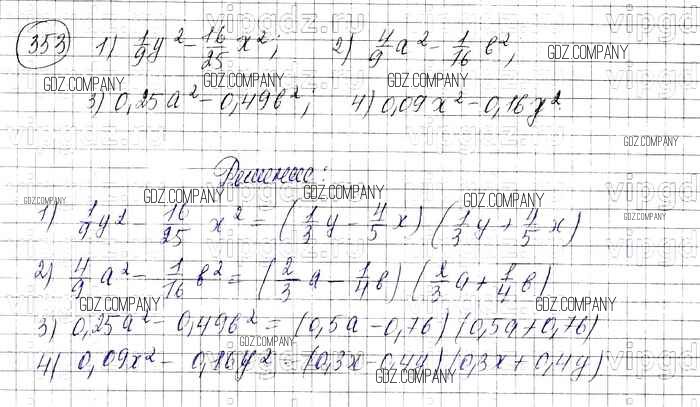 353 1) 1/9 y² - 16/25 x²; 2) 4/9 a² - 1/16 b²;
3) 0,25a² - 0,49b²; 4) 0,09x² - 0,16y²
Решение:
1) 1/9 y² - 16/25 x² = (1/3 y - 4/5 x) (1/3 y + 4/5 x)
2) 4/9 a² - 1/16 b² = (2/3 a - 1/4 b) (2/3 a + 1/4 b)
3) 0,25a² - 0,49b² = (0,5a - 0,7b) (0,5a + 0,7b)
4) 0,09x² - 0,16y² = (0,3x - 0,4y) (0,3x + 0,4y)
GDZ.COMPANY
GDZ.COMPANY
GDZ.COMPANY
GDZ.COMPANY
GDZ.COMPANY
GDZ.COMPANY
GDZ.COMPANY
GDZ.COMPANY
GDZ.COMPANY
GDZ.COMPANY
GDZ.COMPANY
GDZ.COMPANY
GDZ.COMPANY
vipgdz.ru